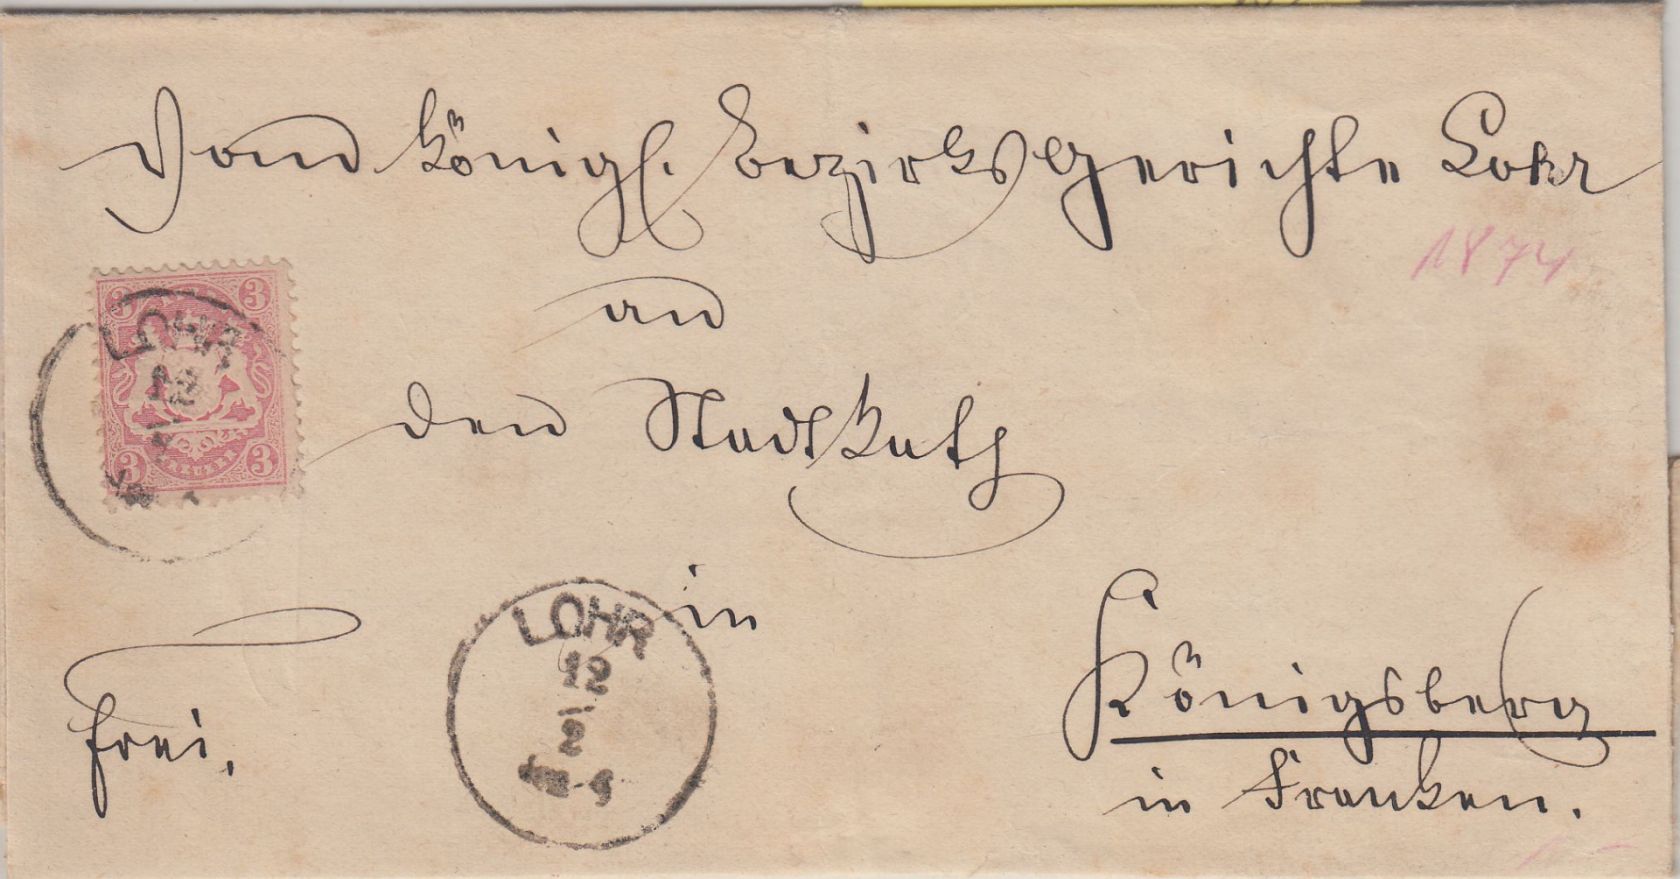 Vom Königl. Bezirksgerichte Lohr
1874
an
3 3
LOHR
12
den Stadtrath
3 KREUZER 3
in
LOHR
12
2
Königsberg
frei.
in Franken.